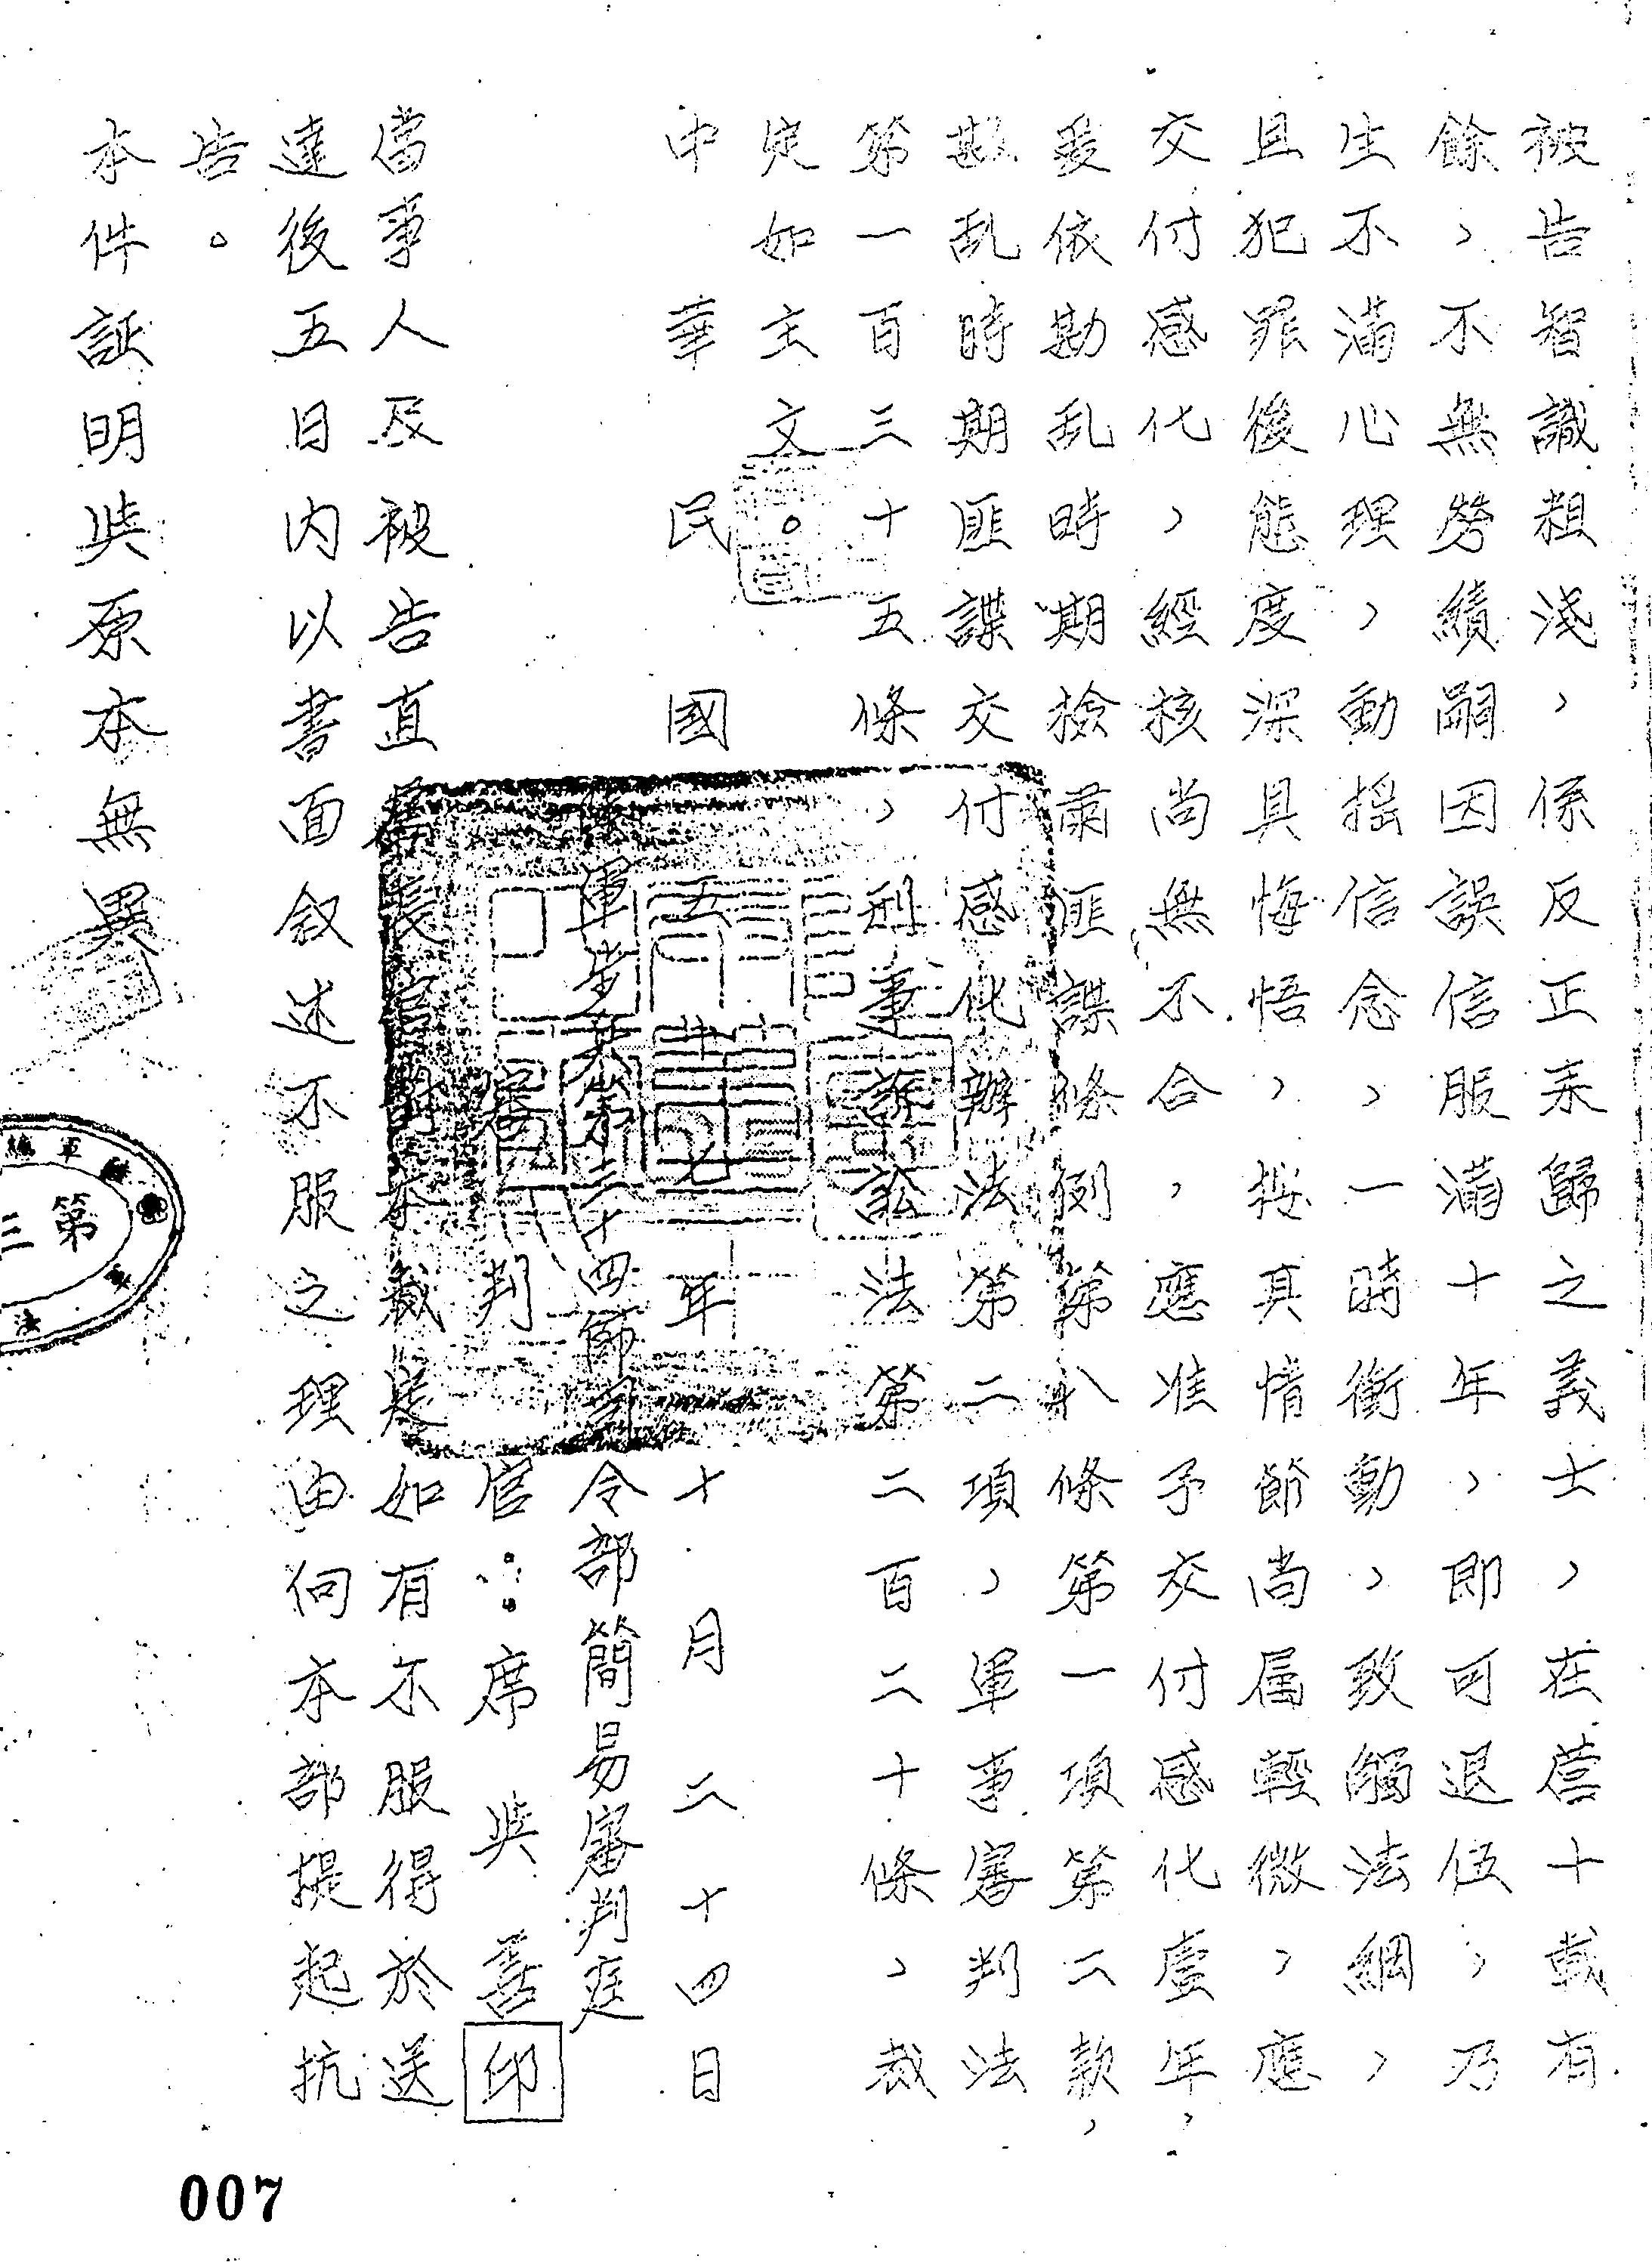 被告智識粗淺，係反正來歸之義士，在營十載有
餘，不無勞績，嗣因誤信服滿十年，即可退伍，乃
生不滿心理，動搖信念，一時衝動，致觸法網，
且犯罪後態度深具悔悟，按其情節尚屬輕微，應
交付感化，經核尚無不合，應准予交付感化處年，
爰依勘乱時期檢肅匪諜條例第八條第一項第二款，
戡乱時期匪諜交付感化辦法第二項，軍事審判法
第一百三十五條，刑事訴訟法第二百二十條，裁
定如主文。
中華民國五七年十月二十四日
陸軍步兵第三十四師司令部簡易審判庭
審判官：席與善印
當事人及被告直屬長官對本裁定如有不服得於送
達後五日內以書面叙述不服之理由向本部提起抗
告。
本件証明與原本無異
第三
007